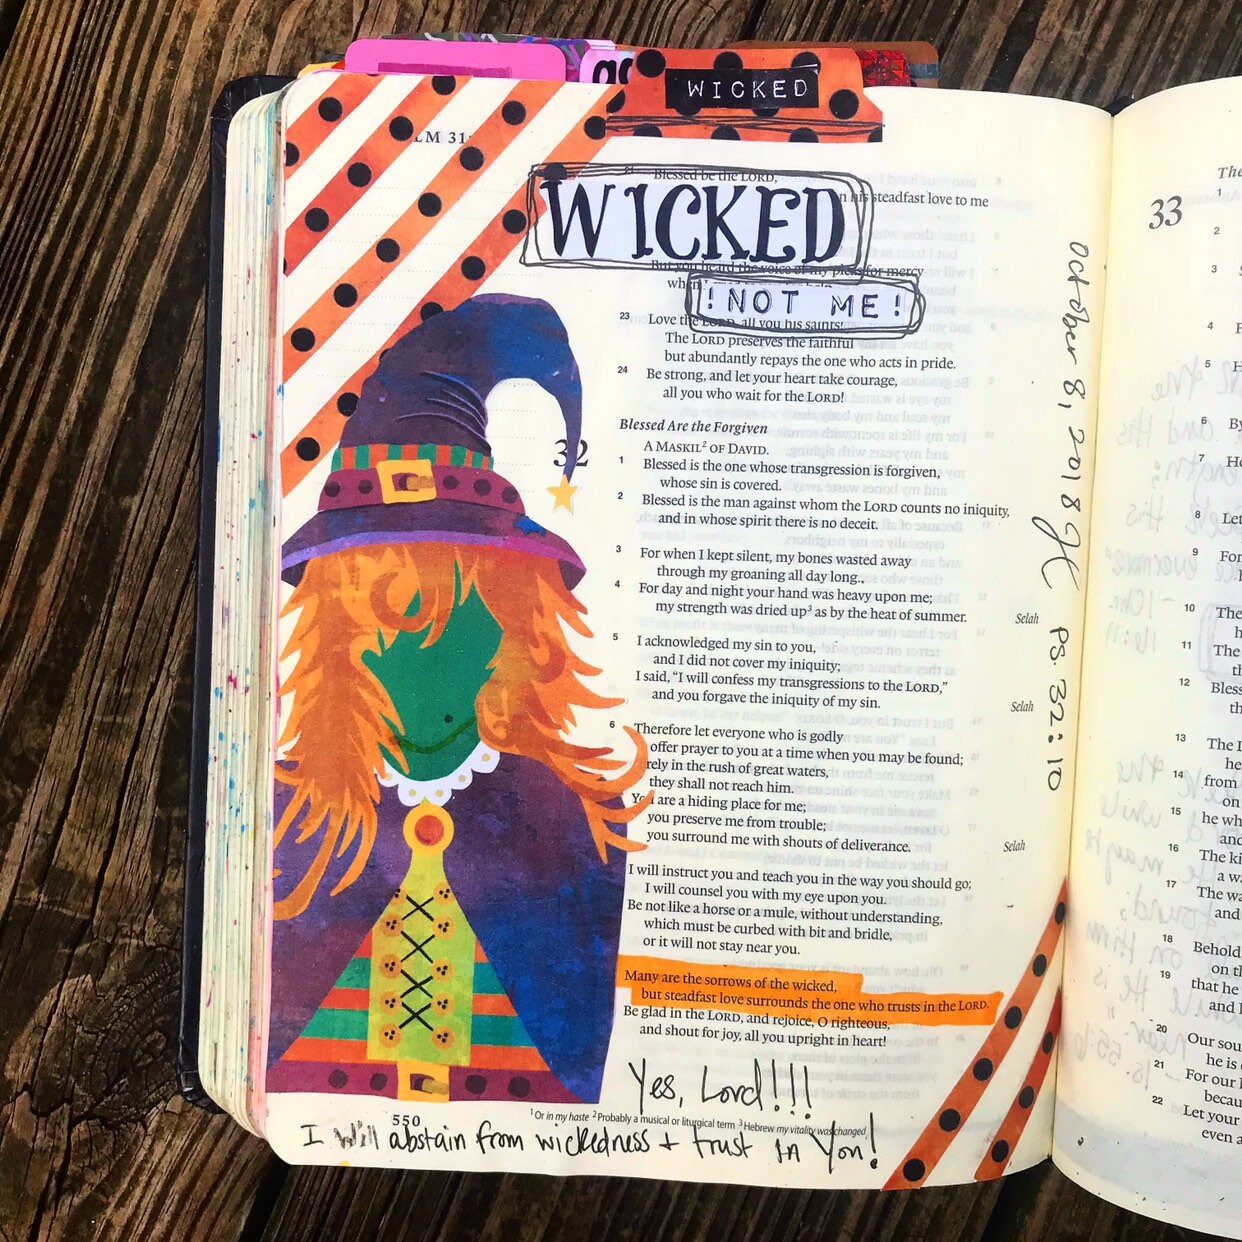 WICKED
LM 31
Blessed be the LORD,
his steadfast love to me
WICKED
But you heard the voice of my pleas for mercy
when
! NOT ME !
23 Love the LORD, all you his saints!
The LORD preserves the faithful
but abundantly repays the one who acts in pride.
24 Be strong, and let your heart take courage,
all you who wait for the LORD!
Blessed Are the Forgiven
32 A MASKIL2 OF DAVID.
1 Blessed is the one whose transgression is forgiven,
whose sin is covered.
2 Blessed is the man against whom the LORD counts no iniquity,
and in whose spirit there is no deceit.
3 For when I kept silent, my bones wasted away
through my groaning all day long.
4 For day and night your hand was heavy upon me;
my strength was dried up3 as by the heat of summer. Selah
5 I acknowledged my sin to you,
and I did not cover my iniquity;
I said, “I will confess my transgressions to the LORD,”
and you forgave the iniquity of my sin. Selah
6 Therefore let everyone who is godly
offer prayer to you at a time when you may be found;
rely in the rush of great waters,
they shall not reach him.
You are a hiding place for me;
you preserve me from trouble;
you surround me with shouts of deliverance. Selah
I will instruct you and teach you in the way you should go;
I will counsel you with my eye upon you.
Be not like a horse or a mule, without understanding,
which must be curbed with bit and bridle,
or it will not stay near you.
Many are the sorrows of the wicked,
but steadfast love surrounds the one who trusts in the LORD.
Be glad in the LORD, and rejoice, O righteous,
and shout for joy, all you upright in heart!
Yes, Lord!!!
550
1 Or in my haste 2 Probably a musical or liturgical term 3 Hebrew my vitality was changed
I will abstain from wickedness + trust in You!
October 8, 2018 PS. 32:10
33
1
2
3
4
5
6 By
7
8 Let
9 For
10 The
11 The
12 Bless
13 The L
he
14 from
on
15 he wh
and
16 The ki
a wa
17 The wa
and
18 Behold,
on th
19 that he
and
20 Our sou
he is
21 For our
becau
22 Let your
even a